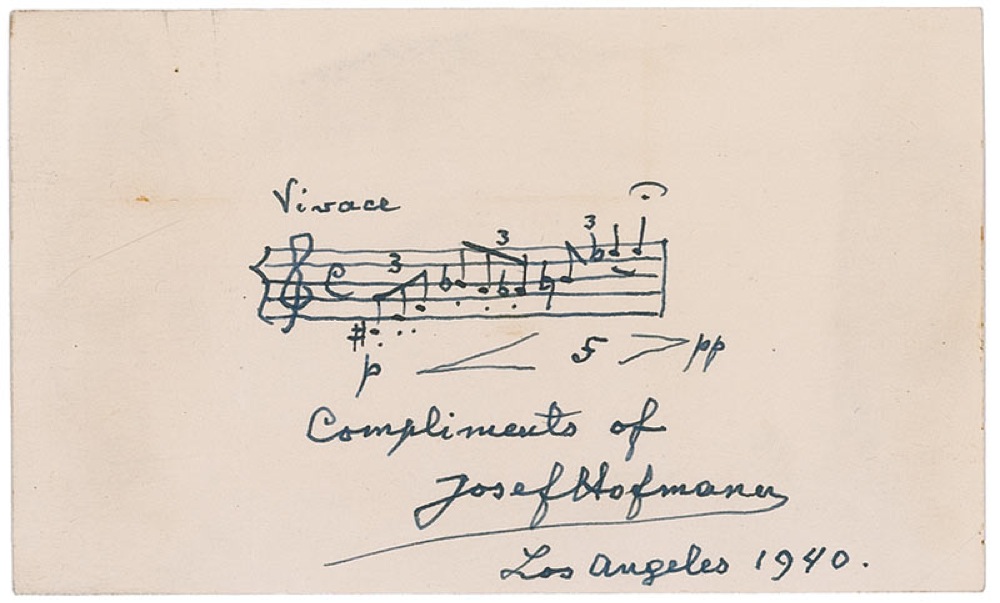 Vivace
3 3 3
p f pp
Compliments of
Josef Hofmann
Los Angeles 1940.